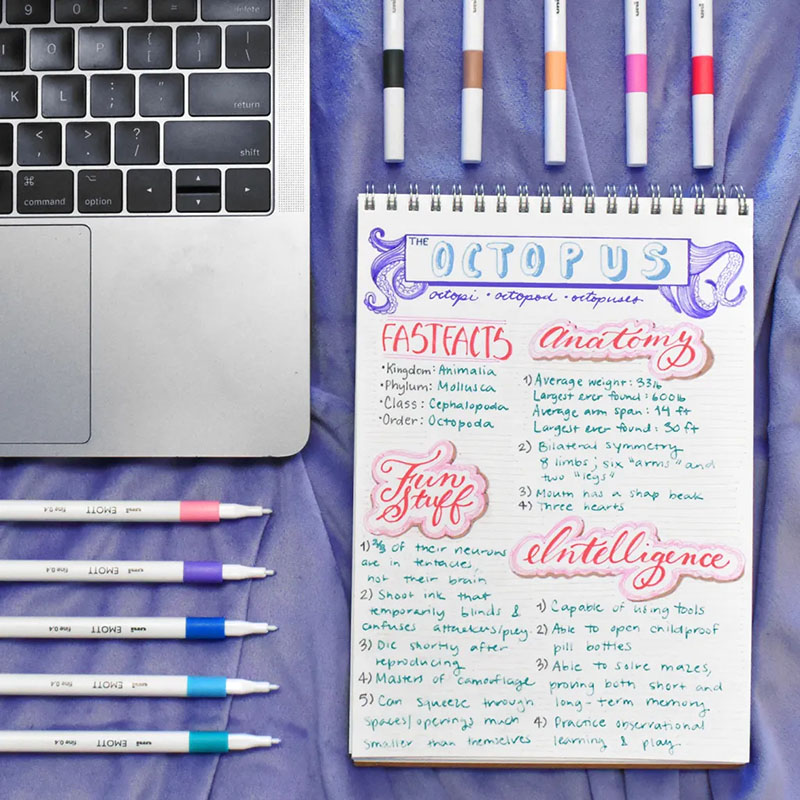 9 0 - +
delete
I O P { [ } ]
K L : ; " '
return
< , > . ? /
shift
⌘ command
⌥ option
uni
uni
uni
uni
THE OCTOPUS
octopi • octopod • octopuses
FAST FACTS
• Kingdom: Animalia
• Phylum: Mollusca
• Class: Cephalopoda
• Order: Octopoda
Anatomy
1) Average weight: 33lb
Largest ever found: 600lb
Average arm span: 14 ft
Largest ever found: 30 ft
2) Bilateral symmetry
8 limbs; six "arms" and
two "legs"
3) Mouth has a shap beak
4) Three hearts
Fun
Stuff
1) 2/3 of their neurons
are in tentacles,
not their brain
2) Shoot ink that
temporarily blinds &
confuses attackers/prey.
3) Die shortly after
reproducing
4) Masters of camoflage
5) Can squeeze through
spaces/openings much
smaller than themselves
Intelligence
1) Capable of using tools
2) Able to open childproof
pill bottles
3) Able to solve mazes,
proving both short and
long-term memory
4) Practice observational
learning & play
fine 0.4 EMOTT uni
fine 0.4 EMOTT uni
fine 0.4 EMOTT uni
fine 0.4 EMOTT uni
fine 0.4 EMOTT uni